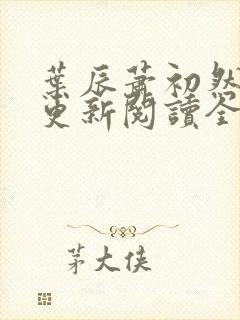 葉辰蕭初然
更新閱讀全
茅大俠